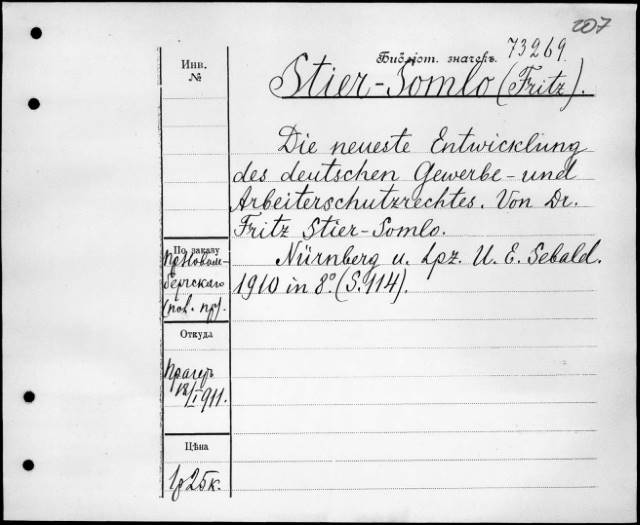 207
Инв.
№
Библіот. значекъ.
73269.
Stier-Somlo (Fritz).
Die neueste Entwicklung
des deutschen Gewerbe- und
Arbeiterschutzrechtes. Von Dr.
Fritz Stier-Somlo.
Nürnberg u. Lpz. U. E. Sebald.
1910 in 8º. (S. 114).
По заказу
пр. Новом-
бергскаго
(пов. пр).
Откуда
Прагеръ
18/I 911.
Цѣна
1р 25к.